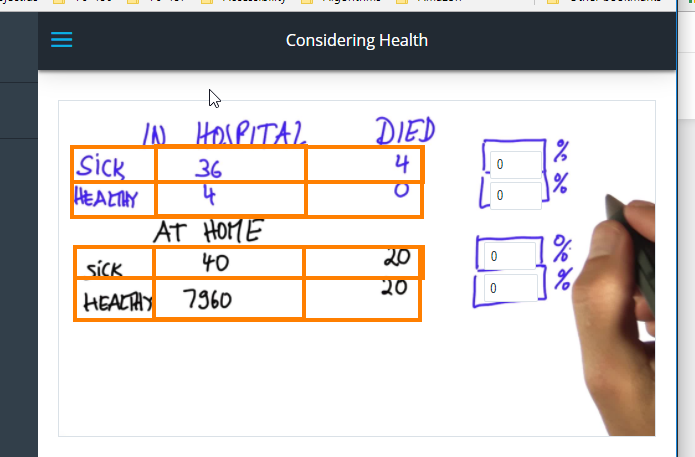 Considering Health
IN HOSPITAL DIED
SICK 36 4 0 %
HEALTHY 4 0 0 %
AT HOME
SICK 40 20 0 %
HEALTHY 7960 20 0 %